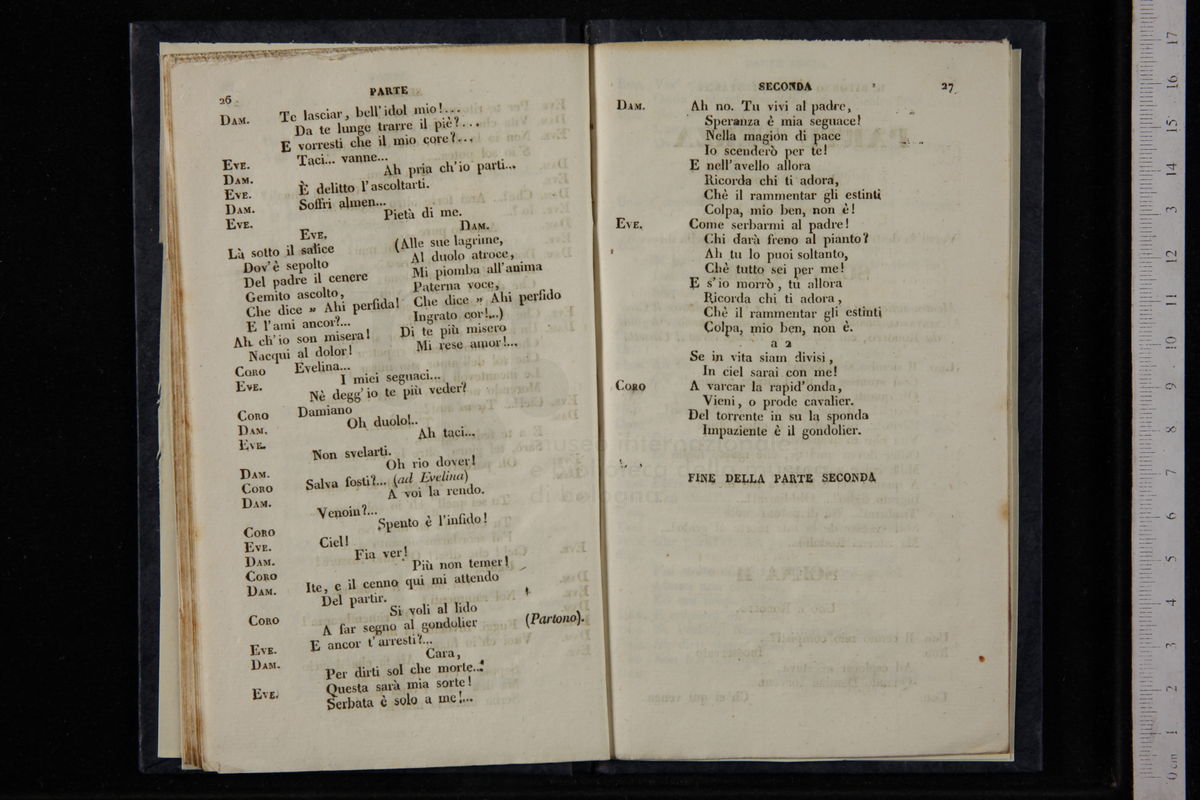 26
PARTE
DAM. Te lasciar, bell' idol mio!...
Da te lunge trarre il piè?...
E vorresti che il mio core?...
EVE. Taci... vanne...
DAM. Ah pria ch'io parti...
EVE. È delitto l'ascoltarti.
DAM. Soffri almen...
EVE. Pietà di me.
EVE.
Là sotto il salice
Dov'è sepolto
Del padre il cenere
Gemito ascolto,
Che dice » Ahi perfida!
E l'ami ancor?...
Ah ch'io son misera!
Nacqui al dolor!
DAM.
(Alle sue lagrime,
Al duolo atroce,
Mi piomba all'anima
Paterna voce,
Che dice » Ahi perfido
Ingrato cor!...)
Di te più misero
Mi rese amor!...
CORO Evelina...
EVE. I miei seguaci...
Nè degg'io te più veder?
CORO Damiano
DAM. Oh duolo!..
EVE. Ah taci...
Non svelarti.
DAM. Oh rio dover!
CORO Salva fosti?... (ad Evelina)
DAM. A voi la rendo.
Venoin?...
CORO Spento è l'infido!
EVE. Ciel!
DAM. Fia ver!
CORO Più non temer!
DAM. Ite, e il cenno qui mi attendo
Del partir.
CORO Si voli al lido
A far segno al gondolier (Partono).
EVE. E ancor t'arresti?...
DAM. Cara,
Per dirti sol che morte...
EVE. Questa sarà mia sorte!
Serbata è solo a me!...
SECONDA
27
DAM. Ah no. Tu vivi al padre,
Speranza è mia seguace!
Nella magion di pace
Io scenderò per te!
E nell'avello allora
Ricorda chi ti adora,
Chè il rammentar gli estinti
Colpa, mio ben, non è!
EVE. Come serbarmi al padre!
Chi darà freno al pianto?
Ah tu lo puoi soltanto,
Chè tutto sei per me!
E s'io morrò, tu allora
Ricorda chi ti adora,
Chè il rammentar gli estinti
Colpa, mio ben, non è.
a 2
Se in vita siam divisi,
In ciel sarai con me!
CORO A varcar la rapid'onda,
Vieni, o prode cavalier.
Del torrente in su la sponda
Impaziente è il gondolier.
FINE DELLA PARTE SECONDA
museo internazionale
e biblioteca della musica
di bologna
0 cm 1 2 3 4 5 6 7 8 9 10 11 12 13 14 15 16 17